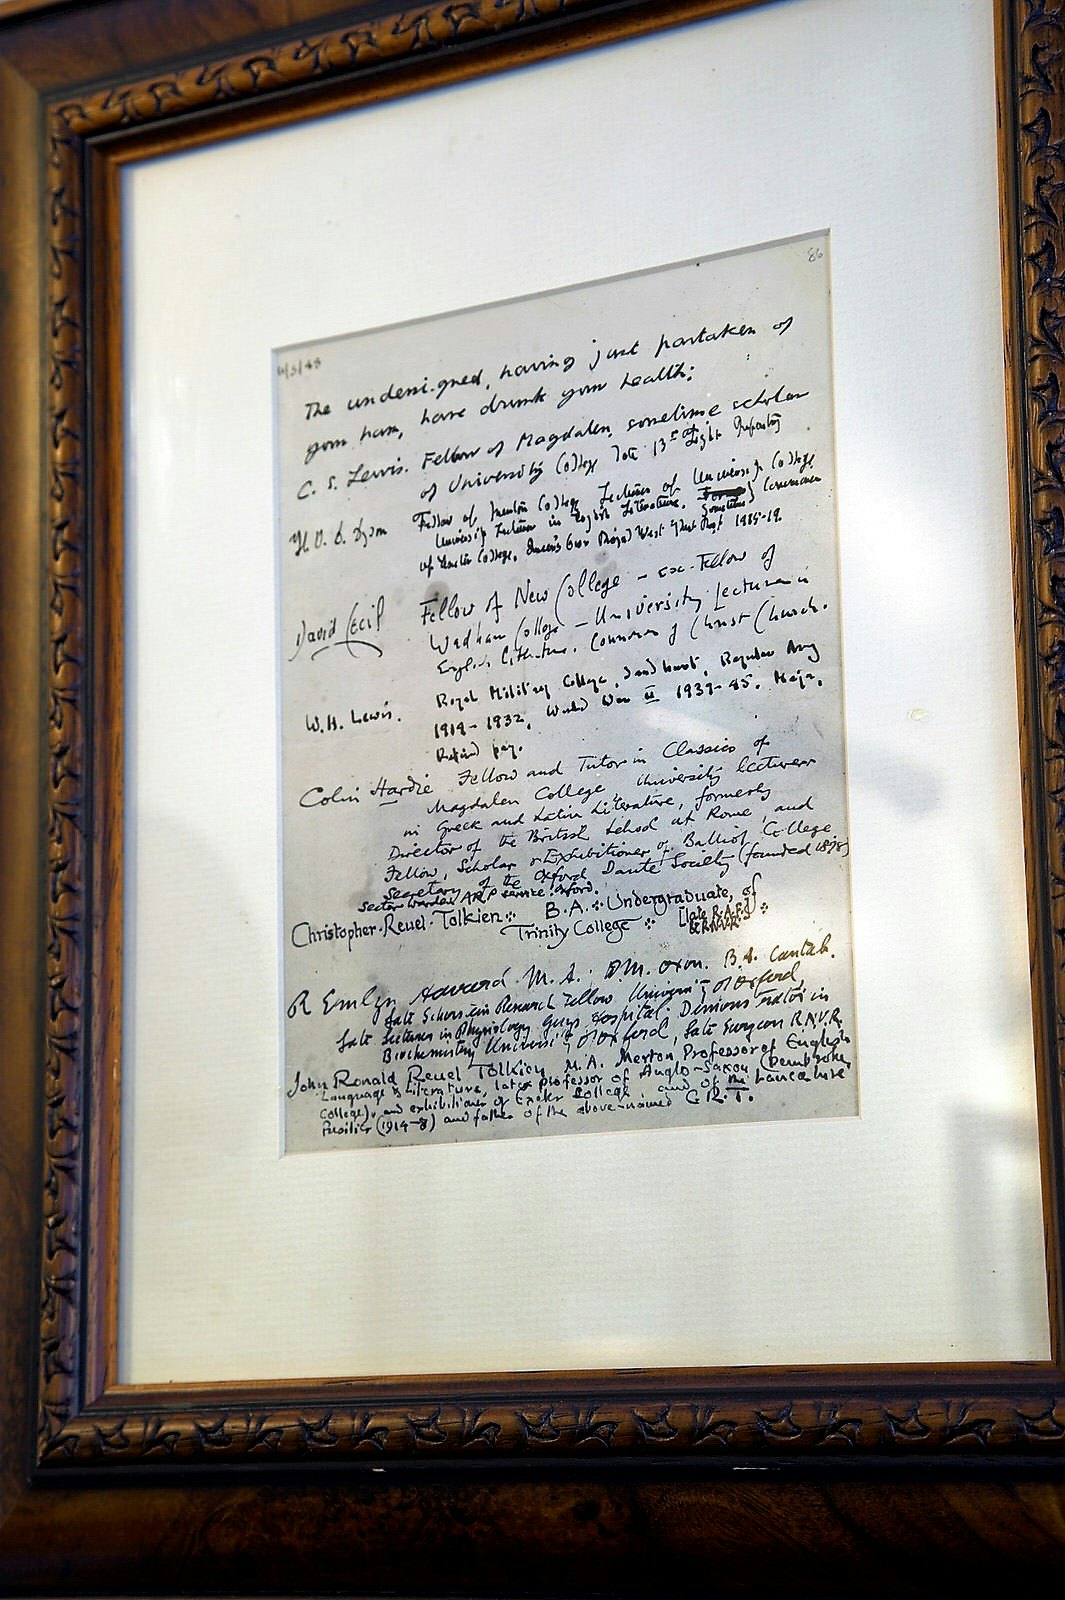 86
The undersigned, having just partaken of
your ham, have drunk your health:
C. S. Lewis. Fellow of Magdalen, sometime scholar
of University College late 13th Light Infantry
H. V. D. Dyson Fellow of Merton College Lecturer of University College
University Lecturer in English Literature. Sometime
of College, Queen's Own Royal West Kent Regt
David Cecil Fellow of New College – ex-Fellow of
Wadham College – University Lecturer in
English Literature. Commoner of Christ Church.
W.H. Lewis. Royal Military College, Sandhurst, Regular Army
1914–1932, World War II 1939–45. Major,
Retired pay.
Colin Hardie Fellow and Tutor in Classics of
Magdalen College, University lecturer
in Greek and Latin Literature, formerly
Director of the British School at Rome, and
Fellow, Scholar & Exhibitioner of Balliol College
Secretary of the Oxford Dante Society (founded
Sector warden ARP service Oxford.
Christopher Reuel Tolkien B.A. Undergraduate of
Trinity College [late R.A.F.
R Emlyn Havard M.A. D.M. Oxon. B.A. Cantab.
late Research Fellow University of Oxford
late Lecturer in Physiology Guys Hospital. Demonstrator in
Biochemistry University of Oxford, late Surgeon R.N.V.R.
John Ronald Reuel Tolkien M.A. Merton Professor of English
Language & Literature, late professor of Anglo-Saxon (Pembroke
College), and exhibitioner of Exeter College and of the Lancashire
Fusilier (1914–8) and father of the above-named C.R.T.